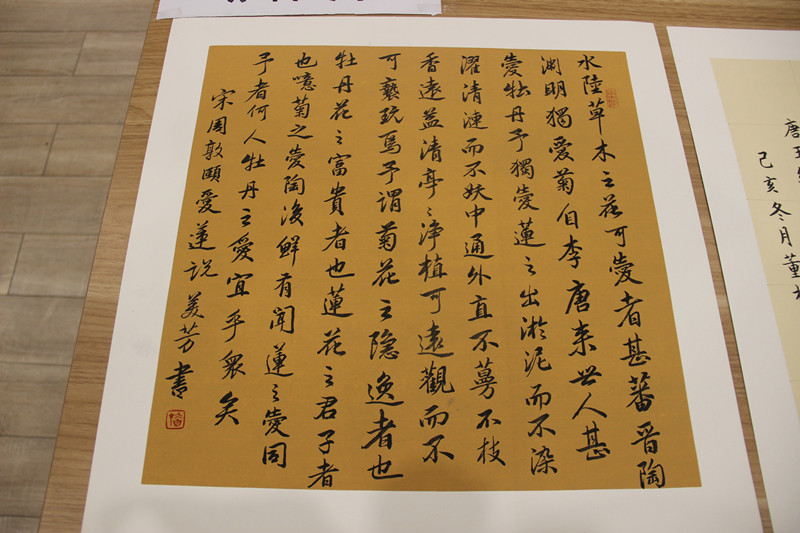 水陸草木之花可愛者甚蕃晋陶
渊明獨愛菊自李唐来世人甚
愛牡丹予獨愛蓮之出淤泥而不染
濯清漣而不妖中通外直不蔓不枝
香遠益清亭〻淨植可遠觀而不
可褻玩焉予謂菊花之隐逸者也
牡丹花之富貴者也蓮花之君子者
也噫菊之愛陶後鮮有聞蓮之愛同
予者何人牡丹之愛宜乎眾矣
宋周敦頤愛蓮説 美芳書
唐王
己亥冬月董